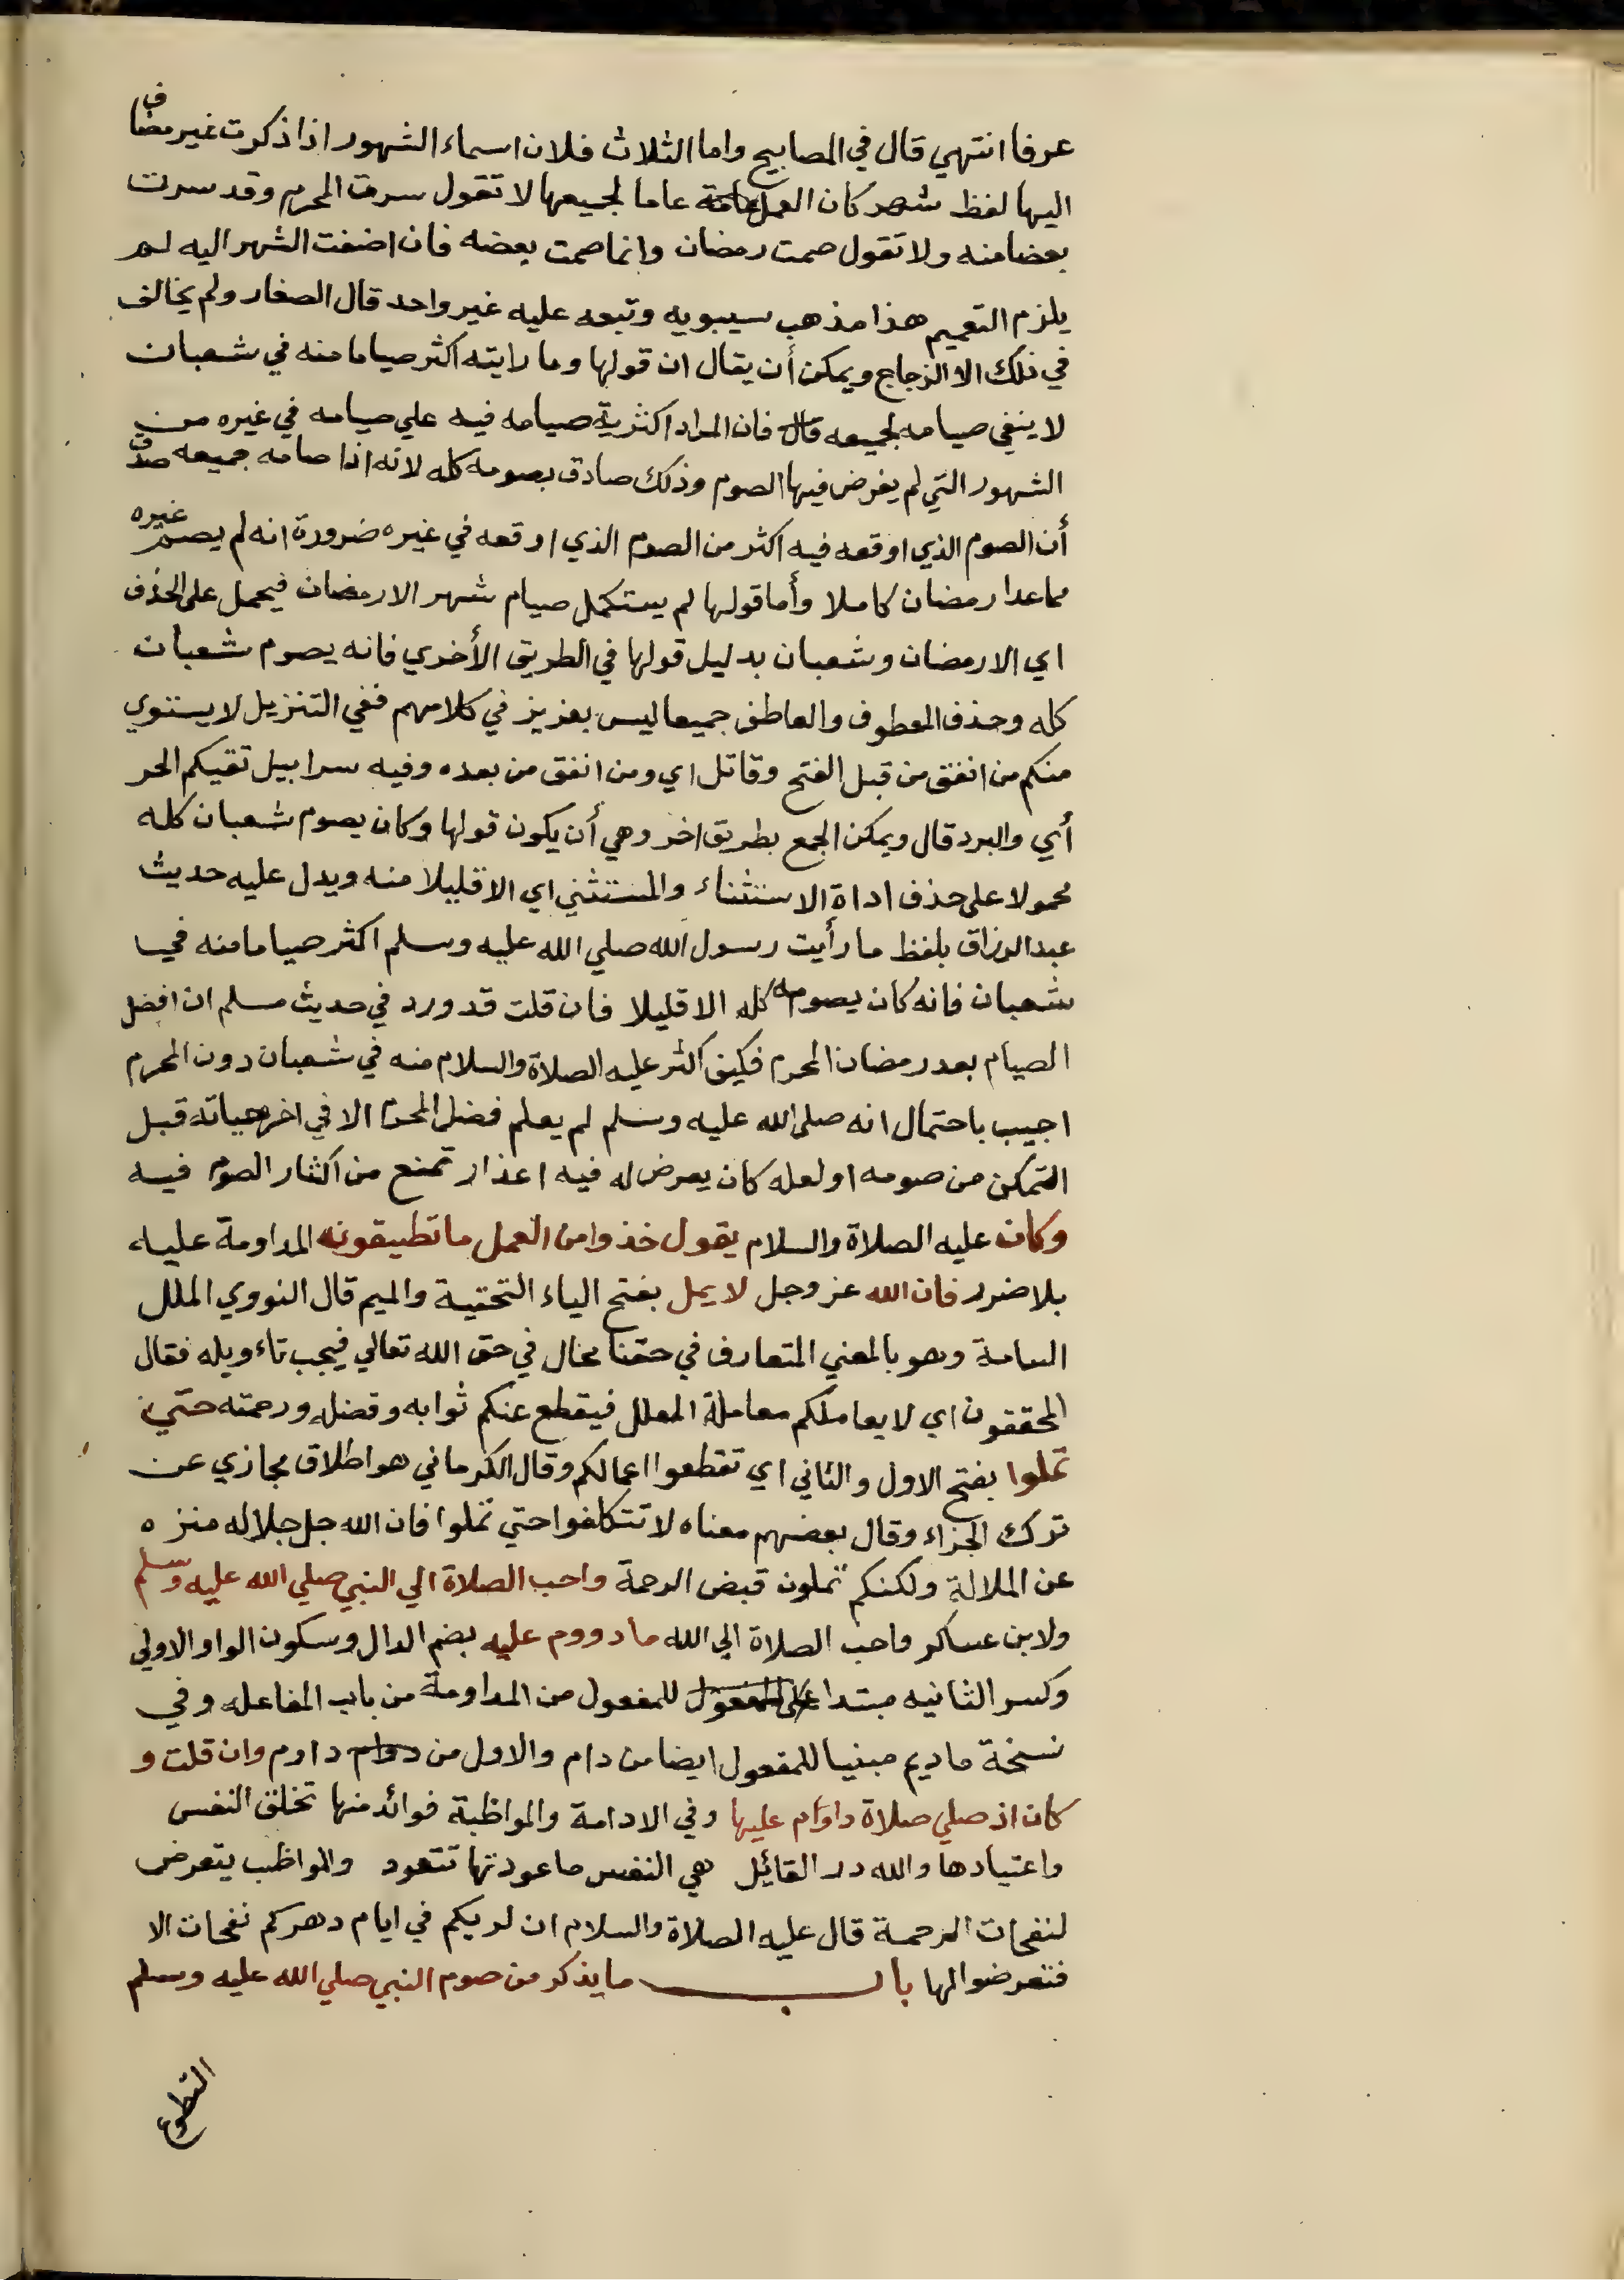 عرفا انتهي قال في المصابيح واما الثلاث فلان اسماء الشهور اذا ذكرت غير مضاف
اليها لفظ شهر كان العمل عاما لجميعها لا تقول سرت المحرم وقد سرت
بعضا منه ولا تقول صمت رمضان وانما صمت بعضه فان اضفت الشهر اليه لم
يلزم التعميم هذا مذهب سيبويه وتبعه عليه غير واحد قال الصفار ولم يخالف
في ذلك الا الزجاج ويمكن أن يقال ان قولها وما رايته اكثر صياما منه في شعبان
لا ينفي صيامه لجميعه فان المراد اكثرية صيامه فيه علي صيامه في غيره من
الشهور التي لم يفرض فيها الصوم وذلك صادق بصومه كله لانه اذا صامه جميعه صدق
أن الصوم الذي اوقعه فيه اكثر من الصوم الذي اوقعه في غيره ضرورة انه لم يصم غيره
مما عدا رمضان كاملا وأما قولها لم يستكمل صيام شهر الا رمضان فيحمل على الحذف
اي الا رمضان وشعبان بدليل قولها في الطريق الأخري فانه يصوم شعبان
كله وحذف المعطوف والعاطف جميعا ليس بعزيز في كلامهم ففي التنزيل لا يستوي
منكم من انفق من قبل الفتح وقاتل اي ومن انفق من بعده وفيه سرابيل تقيكم الحر
أي والبرد قال ويمكن الجمع بطريق اخر وهي أن يكون قولها وكان يصوم شعبان كله
محمولا على حذف اداة الاستثناء والمستثني اي الا قليلا منه ويدل عليه حديث
عبد الرزاق بلفظ ما رأيت رسول الله صلي الله عليه وسلم اكثر صياما منه في
شعبان فانه كان يصومه كله الا قليلا فان قلت قد ورد في حديث مسلم ان افضل
الصيام بعد رمضان المحرم فكيف اكثر عليه الصلاة والسلام منه في شعبان دون المحرم
اجيب باحتمال انه صلى الله عليه وسلم لم يعلم فضل المحرم الا في اخر حياته قبل
التمكن من صومه او لعله كان يعرض له فيه اعذار تمنع من اكثار الصوم فيه
وكان عليه الصلاة والسلام يقول خذوا من العمل ما تطيقونه المداومة عليه
بلا ضرر فان الله عز وجل لا يمل بفتح الياء التحتية والميم قال النووي الملل
السامة وهو بالمعني المتعارف في حقنا محال في حق الله تعالي فيجب تاءويله فقال
المحققون اي لا يعاملكم معاملة الملل فيقطع عنكم ثوابه وفضله ورحمته حتي
تملوا بفتح الاول والثاني اي تقطعوا اعمالكم وقال الكرماني هو اطلاق مجازي عن
ترك الجزاء وقال بعضهم معناه لا تتكلفوا حتي تملوا فان الله جل جلاله منزه
عن الملالة ولكنكم تملون قبض الرحمة واحب الصلاة الي النبي صلي الله عليه وسلم
ولابن عساكر واحب الصلاة الي الله ما دووم عليه بضم الدال وسكون الواو الاولي
وكسر الثانيه مبتدا للمفعول من المداومة من باب المفاعله وفي
نسخة ما ديم مبنيا للمفعول ايضا من دام والاول من داوم وان قلت و
كان اذ صلي صلاة داوام عليها وفي الادامة والمواظبة فوائد منها تخلق النفس
واعتيادها والله در القائل هي النفس ما عودتها تتعود والمواظب يتعرض
لنفحات الرحمة قال عليه الصلاة والسلام ان لربكم في ايام دهركم نفحات الا
فتعرضوا لها باب ما يذكر من صوم النبي صلي الله عليه وسلم
التطوع